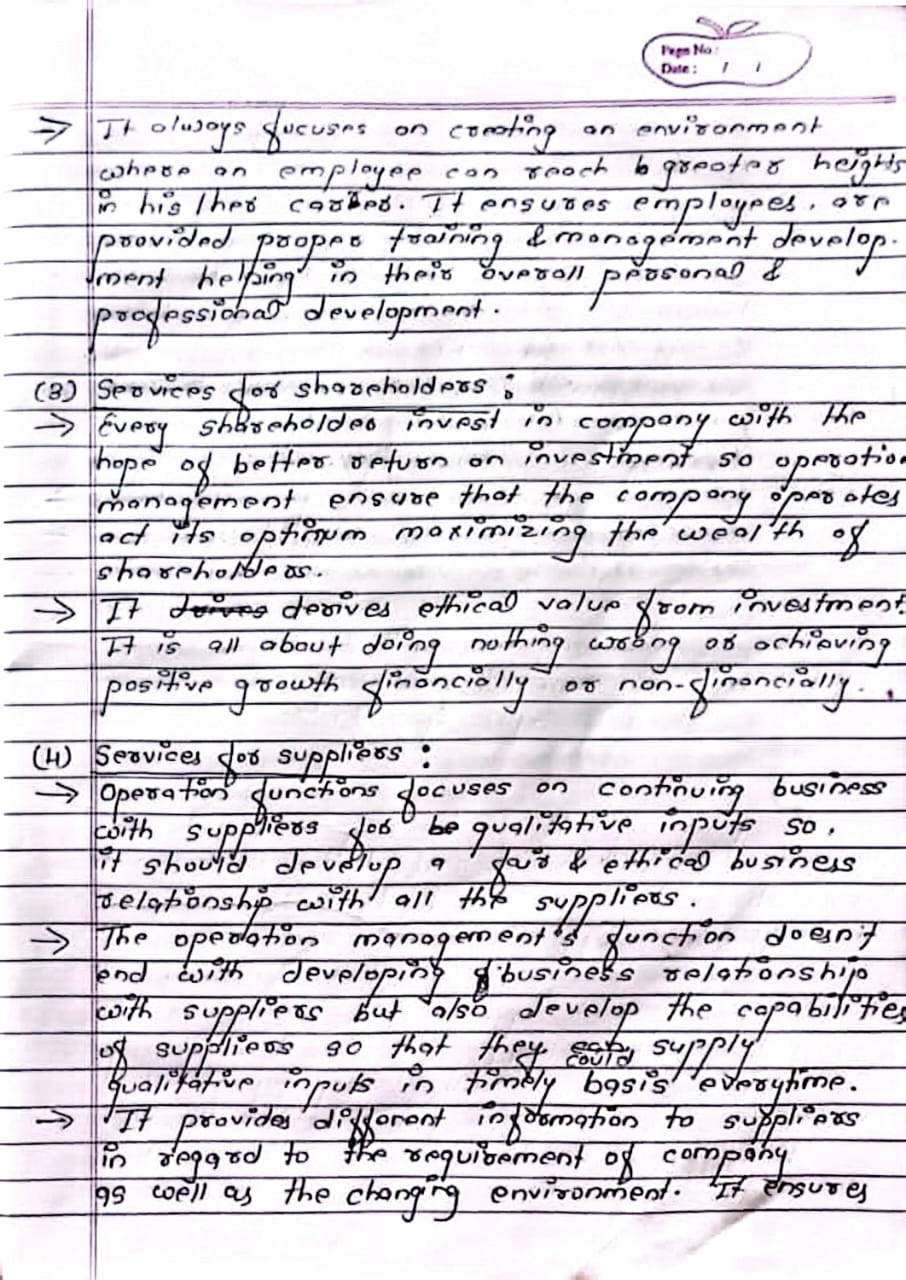 Page No:
Date: / /
→ It always fucuses on creating an environment
where an employee can reach to greater heights
in his/her carrer. It ensures employees, are
provided proper training & management develop-
ment helping in their overall personal &
professional development.
(3) Services for shareholders :
→ Every shareholder invest in company with the
hope of better return on investment so operation
management ensure that the company operates
act its optimum maximizing the wealth of
shareholders.
→ It drives derives ethical value from investment.
It is all about doing nothing wrong or achieving
positive growth financially or non-financially.
(4) Services for suppliers :
→ Operation functions focuses on continuing business
with suppliers for be qualitative inputs so,
it should develop a fair & ethical business
relationship with all the suppliers.
→ The operation management's function doesn't
end with developing business relationship
with suppliers but also develop the capabilities
of suppliers so that they can could supply
qualitative inputs in timely basis everytime.
→ It provides different information to suppliers
in regard to the requirement of company
as well as the changing environment. It ensures